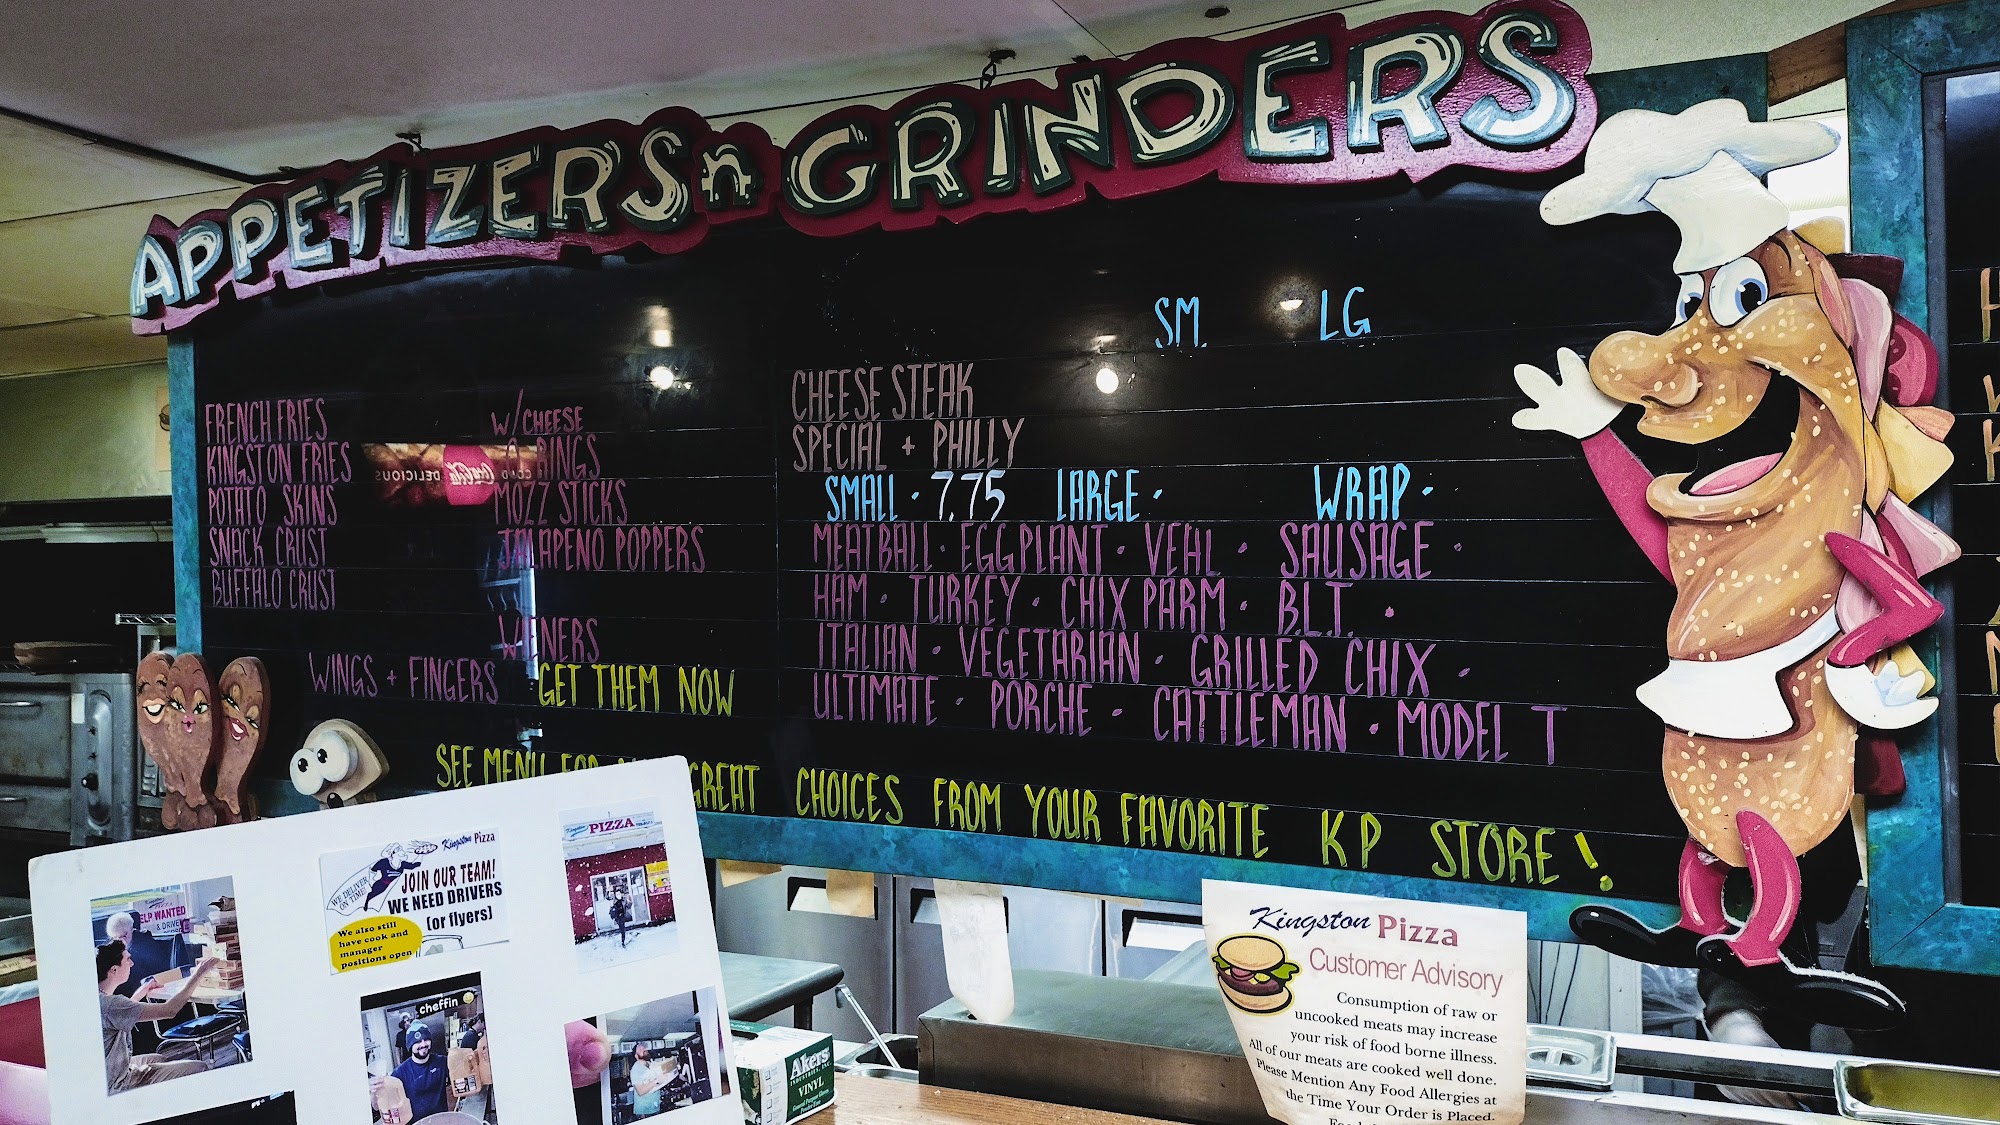 APPETIZERS n GRINDERS
SM. LG
FRENCH FRIES W/CHEESE
KINGSTON FRIES O RINGS
POTATO SKINS MOZZ STICKS
SNACK CRUST JALAPENO POPPERS
BUFFALO CRUST
WINGS + FINGERS GET THEM NOW
SEE MENU FOR GREAT CHOICES FROM YOUR FAVORITE KP STORE!
CHEESE STEAK
SPECIAL + PHILLY
SMALL · 7.75 LARGE · WRAP ·
MEATBALL · EGGPLANT · VEAL · SAUSAGE ·
HAM · TURKEY · CHIX PARM · B.L.T. ·
ITALIAN · VEGETARIAN · GRILLED CHIX ·
ULTIMATE · PORCHE · CATTLEMAN · MODEL T
DELICIOUS Coca-Cola
Kingston Pizza
WE DELIVER
ON TIME!
JOIN OUR TEAM!
WE NEED DRIVERS
(or flyers)
We also still
have cook and
manager
positions open
PIZZA
PIZZA
ELP WANTED
& DRIVE
cheffin
Akers
INDUSTRIES, INC.
VINYL
Kingston Pizza
Customer Advisory
Consumption of raw or
uncooked meats may increase
your risk of food borne illness.
All of our meats are cooked well done.
Please Mention Any Food Allergies at
the Time Your Order is Placed.